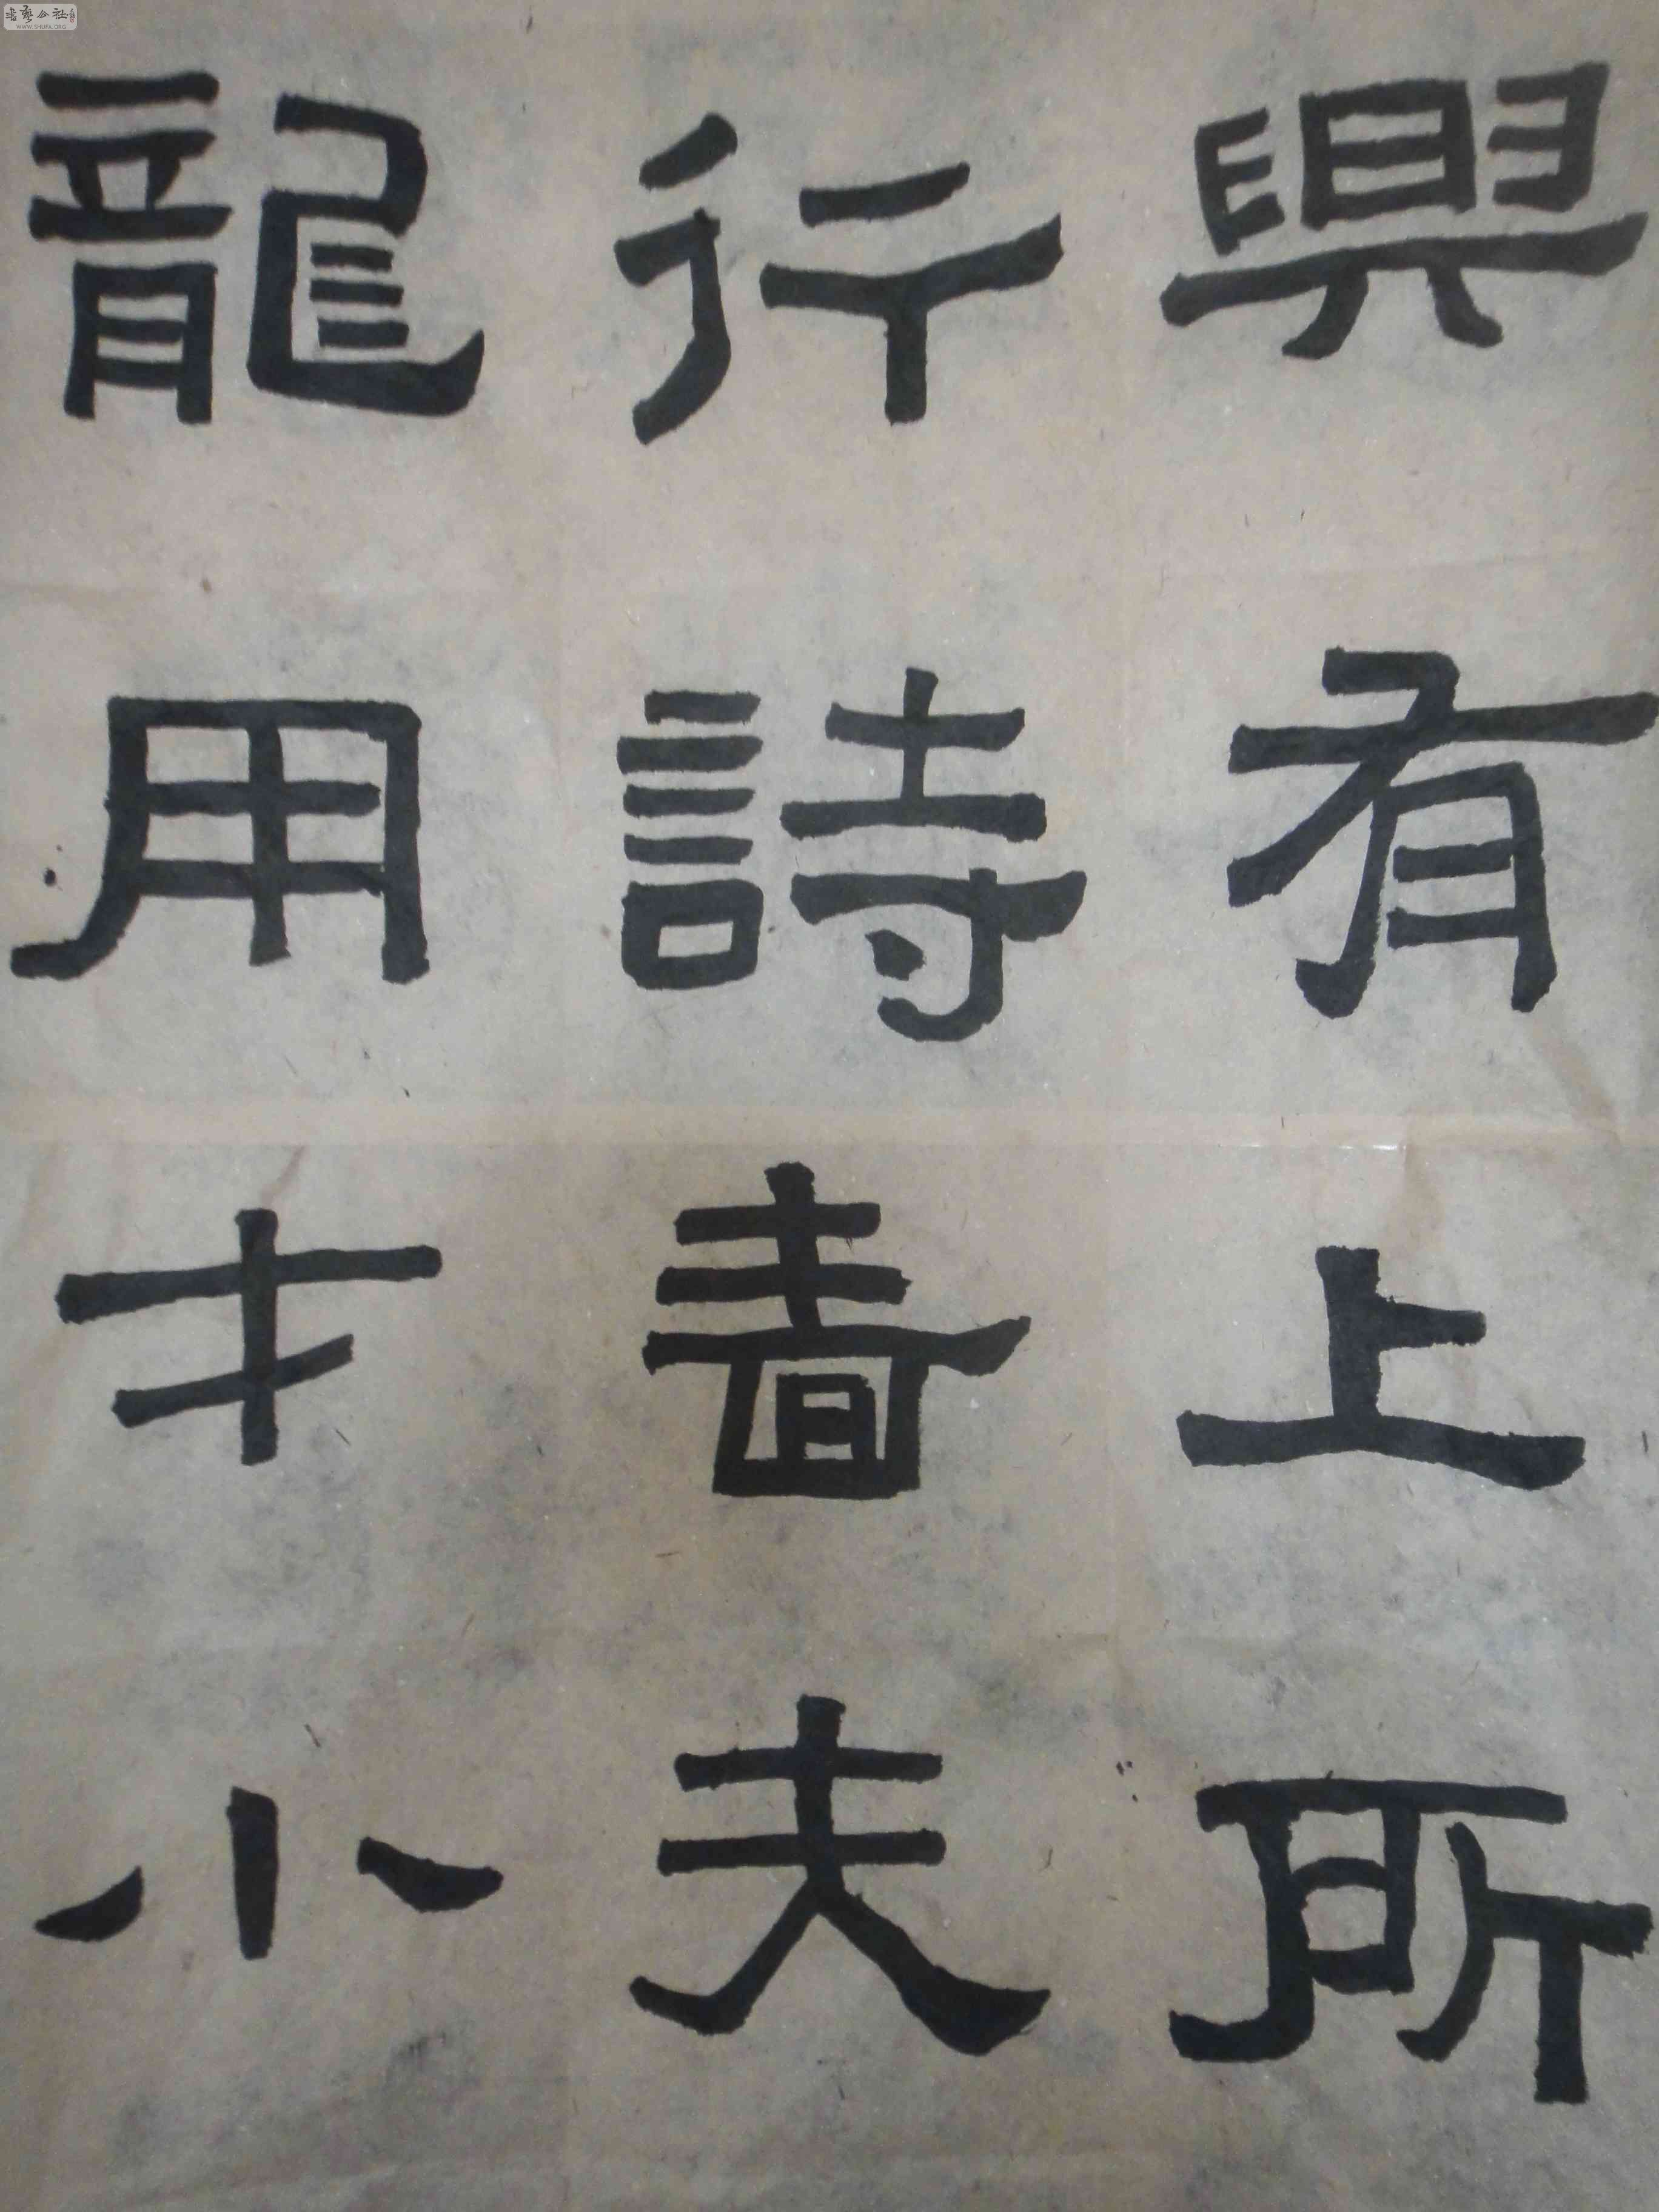 興有上所
行詩書夫
龍用才小
書藝公社
WWW.SHUFA.ORG